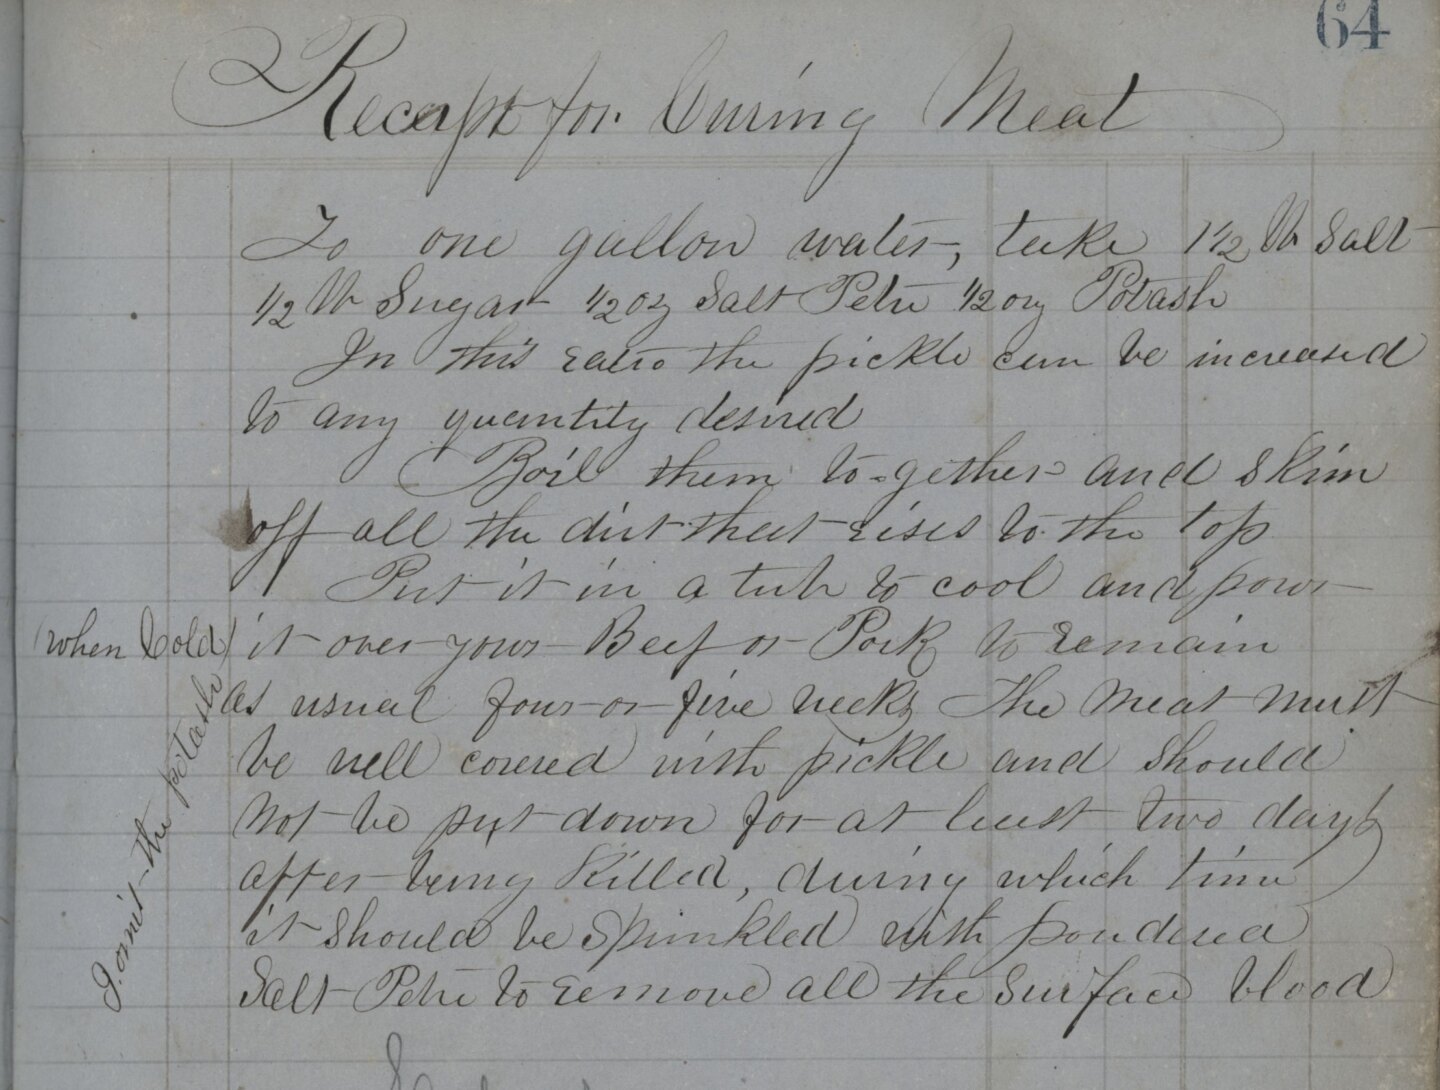 64
Receipt for Curing Meat
To one gallon water, take 1 1/2 lb Salt
1/2 lb Sugar 1/2 oz Salt Petre 1/2 oz Potash
In this ratio the pickle can be increased
to any quantity desired
Boil them to-gether and skim
off all the dirt that rises to the top
Put it in a tub to cool and pour
(when Cold) it over your Beef or Pork to remain
as usual four or five weeks The meat must
be well covered with pickle and should
not be put down for at least two days
after being killed, during which time
it should be sprinkled with powdered
Salt Petre to remove all the surface blood
I omit the potash